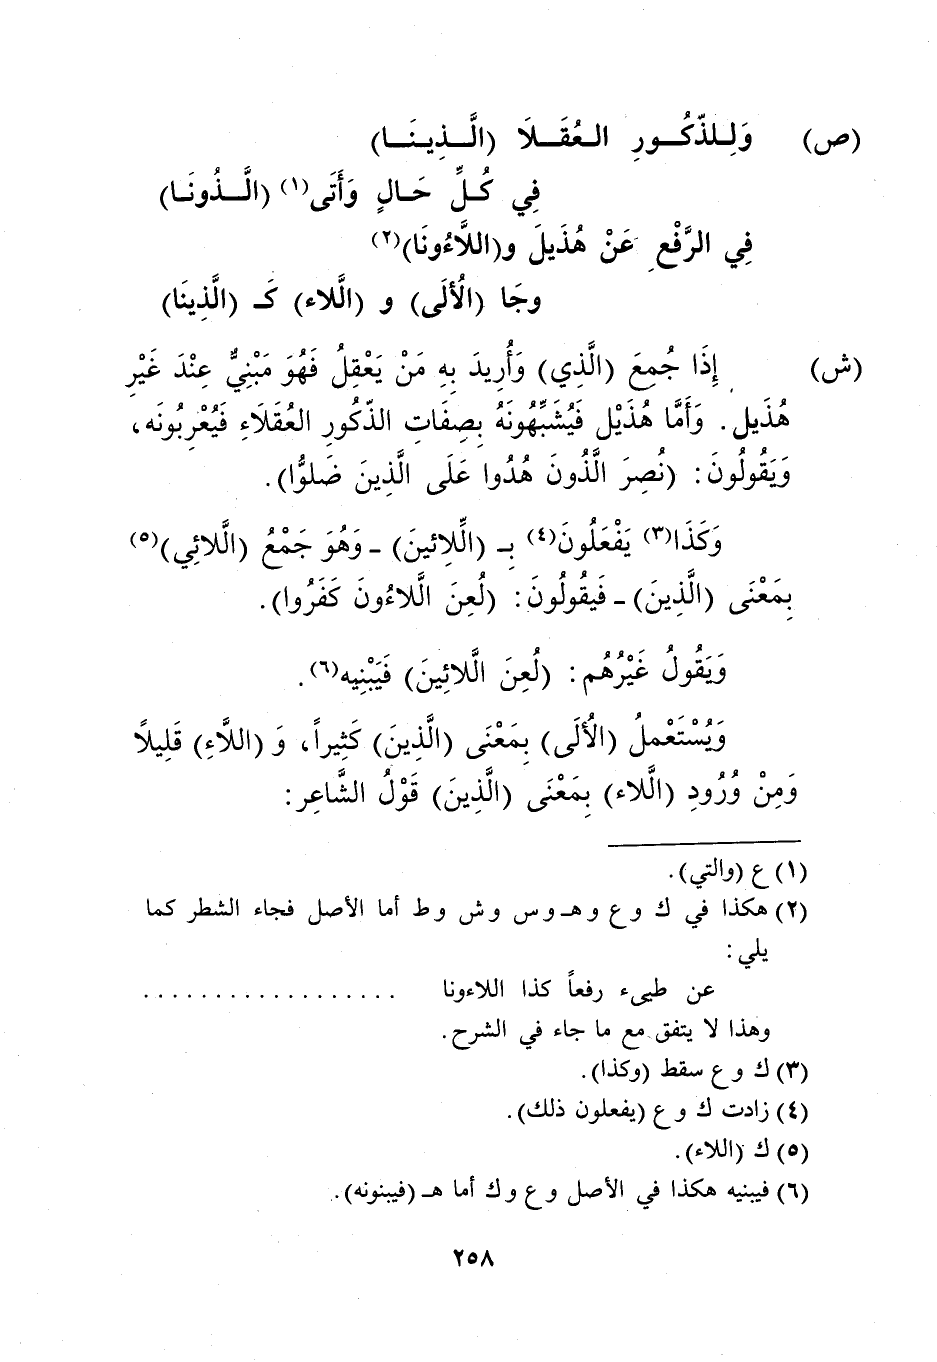 (ص) وَلِلذُّكُورِ العُقَلَا (الَّذِينَا)
فِي كُلِّ حَالٍ وَأَتَى(١) (الَّذُونَا)
فِي الرَّفْعِ عَنْ هُذَيلَ و(اللَّاءُونَا)(٢)
وجَا (الْأُلَى) و (الَّلاءِ) كَـ (الَّذِينَا)
(ش) إِذَا جُمِعَ (الَّذِي) وَأُرِيدَ بِهِ مَنْ يَعْقِلُ فَهُوَ مَبْنِيٌّ عِنْدَ غَيْرِ
هُذَيلٍ. وَأَمَّا هُذَيْل فَيُشَبِّهُونَهُ بِصِفَاتِ الذّكُورِ العُقَلَاءِ فَيُعْرِبُونَه،
وَيَقُولُونَ: (نُصِرَ الَّذُونَ هُدُوا عَلَى الَّذِينَ ضَلوُّا).
وَكَذَا(٣) يَفْعَلُونَ(٤) بِـ (الِّلائِينَ) - وَهُوَ جَمْعُ (الَّلائِي)(٥)
بِمَعْنَى (الَّذِينَ) - فَيقُولُونَ: (لُعِنَ الَّلاءُونَ كَفَرُوا).
وَيَقُولُ غَيْرُهُم: (لُعِنَ الَّلائِينَ) فَيَبْنِيه(٦).
وَيُسْتَعْملُ (الْأُلَى) بِمَعْنَى (الَّذِينَ) كَثِيراً، وَ (اللَّاءِ) قَلِيلاً
وَمِنْ وُرُودِ (الَّلاء) بِمَعْنَى (الَّذِينَ) قَوْلُ الشَّاعِرِ:
(١) ع (والتي).
(٢) هكذا في ك و ع و هـ و س و ش و ط أما الأصل فجاء الشطر كما
يلي:
عن طيىء رفعاً كذا اللاءونا ..................
وهذا لا يتفق مع ما جاء في الشرح.
(٣) ك و ع سقط (وكذا).
(٤) زادت ك و ع (يفعلون ذلك).
(٥) ك (اللاء).
(٦) فيبنيه هكذا في الأصل و ع و ك أما هـ (فيبنونه).
٢٥٨